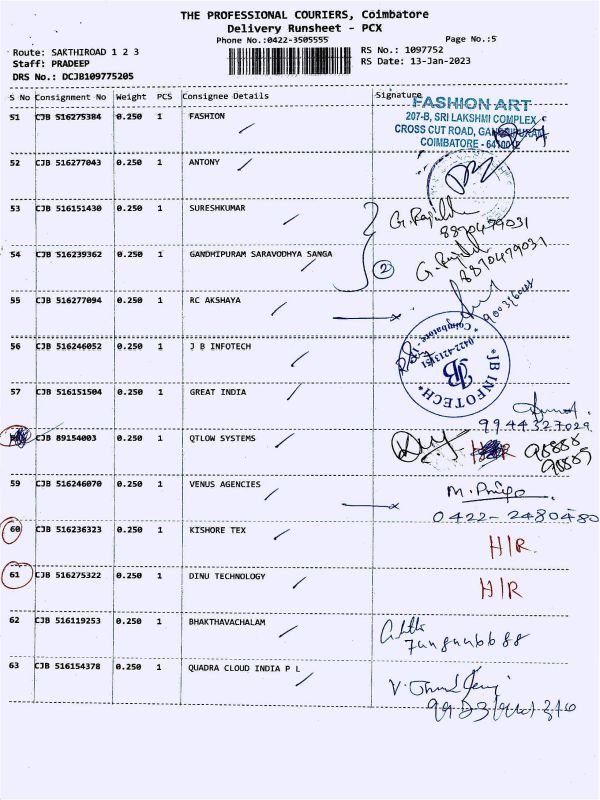 THE PROFESSIONAL COURIERS, Coimbatore
Delivery Runsheet - PCX
Phone No.:0422-3505555
Page No.:5
Route: SAKTHIROAD 1 2 3
RS No.: 1097752
Staff: PRADEEP
RS Date: 13-Jan-2023
DRS No.: DCJB109775205
S No Consignment No Weight PCS Consignee Details Signature
51 CJB 516275384 0.250 1 FASHION
FASHION ART
207-B, SRI LAKSHMI COMPLEX
CROSS CUT ROAD,
COIMBATORE -
52 CJB 516277043 0.250 1 ANTONY
53 CJB 516151430 0.250 1 SURESHKUMAR
8870479031
54 CJB 516239362 0.250 1 GANDHIPURAM SARAVODHYA SANGA
2
8870479031
55 CJB 516277094 0.250 1 RC AKSHAYA
56 CJB 516246052 0.250 1 J B INFOTECH
* JB INFOTECH *
Coimbatore
JB
57 CJB 516151504 0.250 1 GREAT INDIA
9944327029
CJB 89154003 0.250 1 QTLOW SYSTEMS
H/R
98888
59 CJB 516246070 0.250 1 VENUS AGENCIES
M. Priya
0422-2480480
60 CJB 516236323 0.250 1 KISHORE TEX
H/R
61 CJB 516275322 0.250 1 DINU TECHNOLOGY
H/R
62 CJB 516119253 0.250 1 BHAKTHAVACHALAM
63 CJB 516154378 0.250 1 QUADRA CLOUD INDIA P L